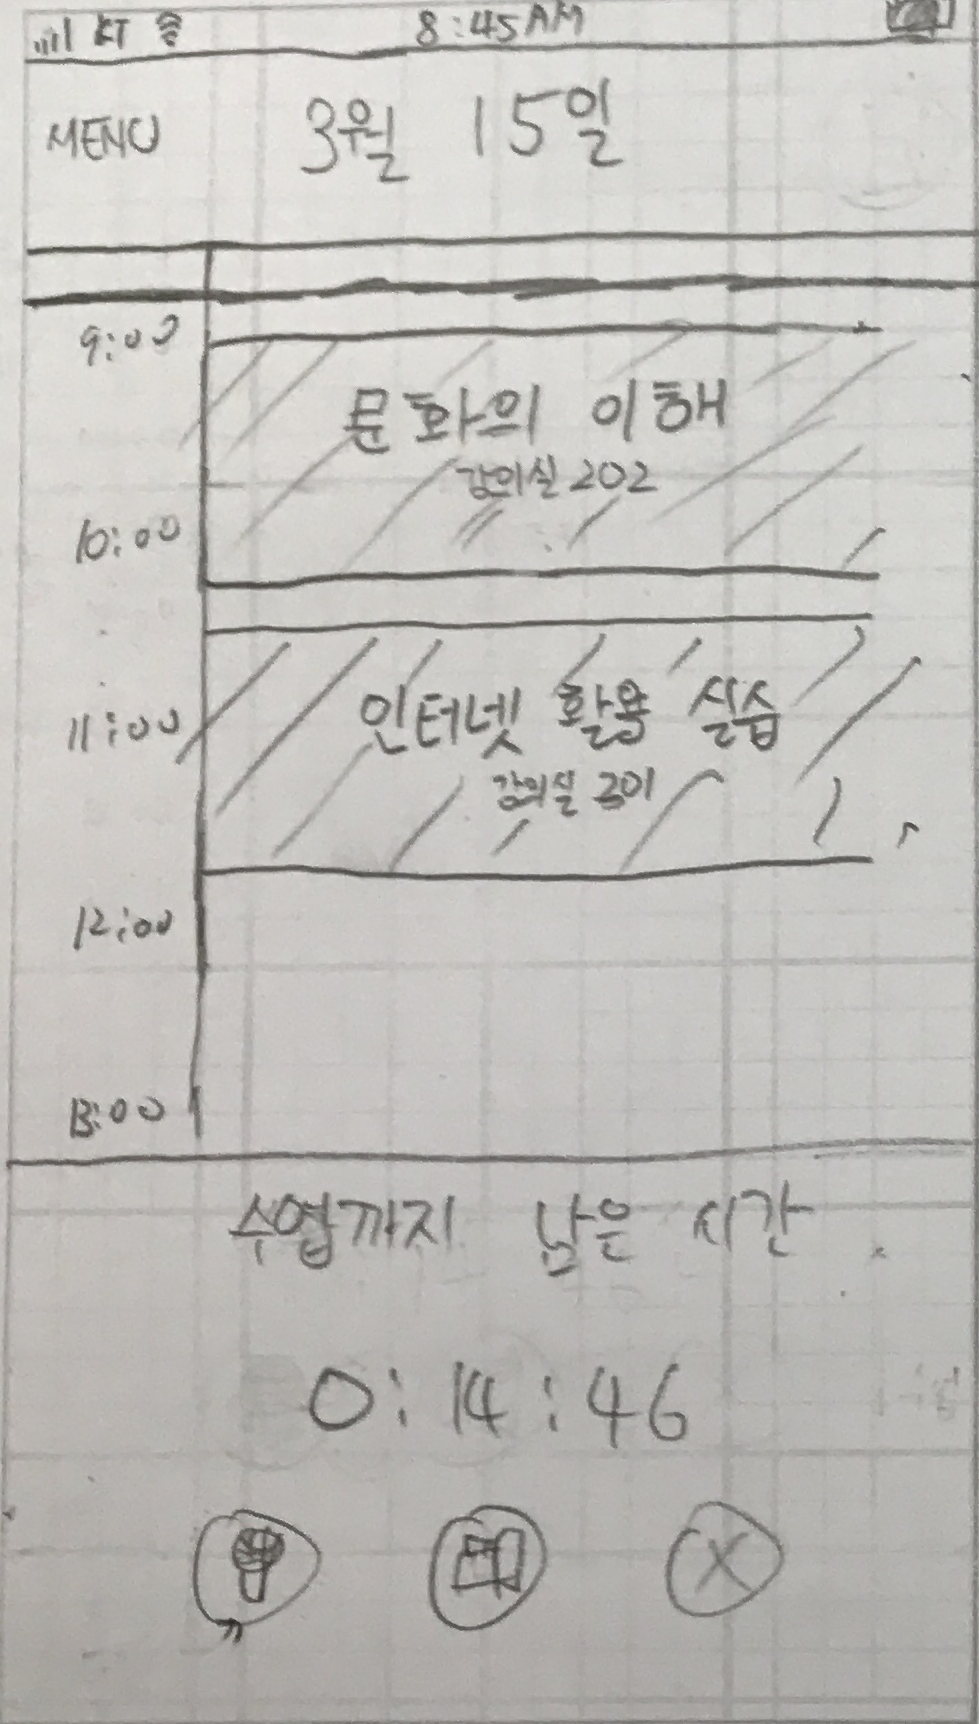 KT 8:45AM
MENU 3월 15일
9:00
문화의 이해
강의실 202
10:00
인터넷 활용 실습
11:00
강의실 301
12:00
13:00
수업까지 남은 시간
0:14:46
X